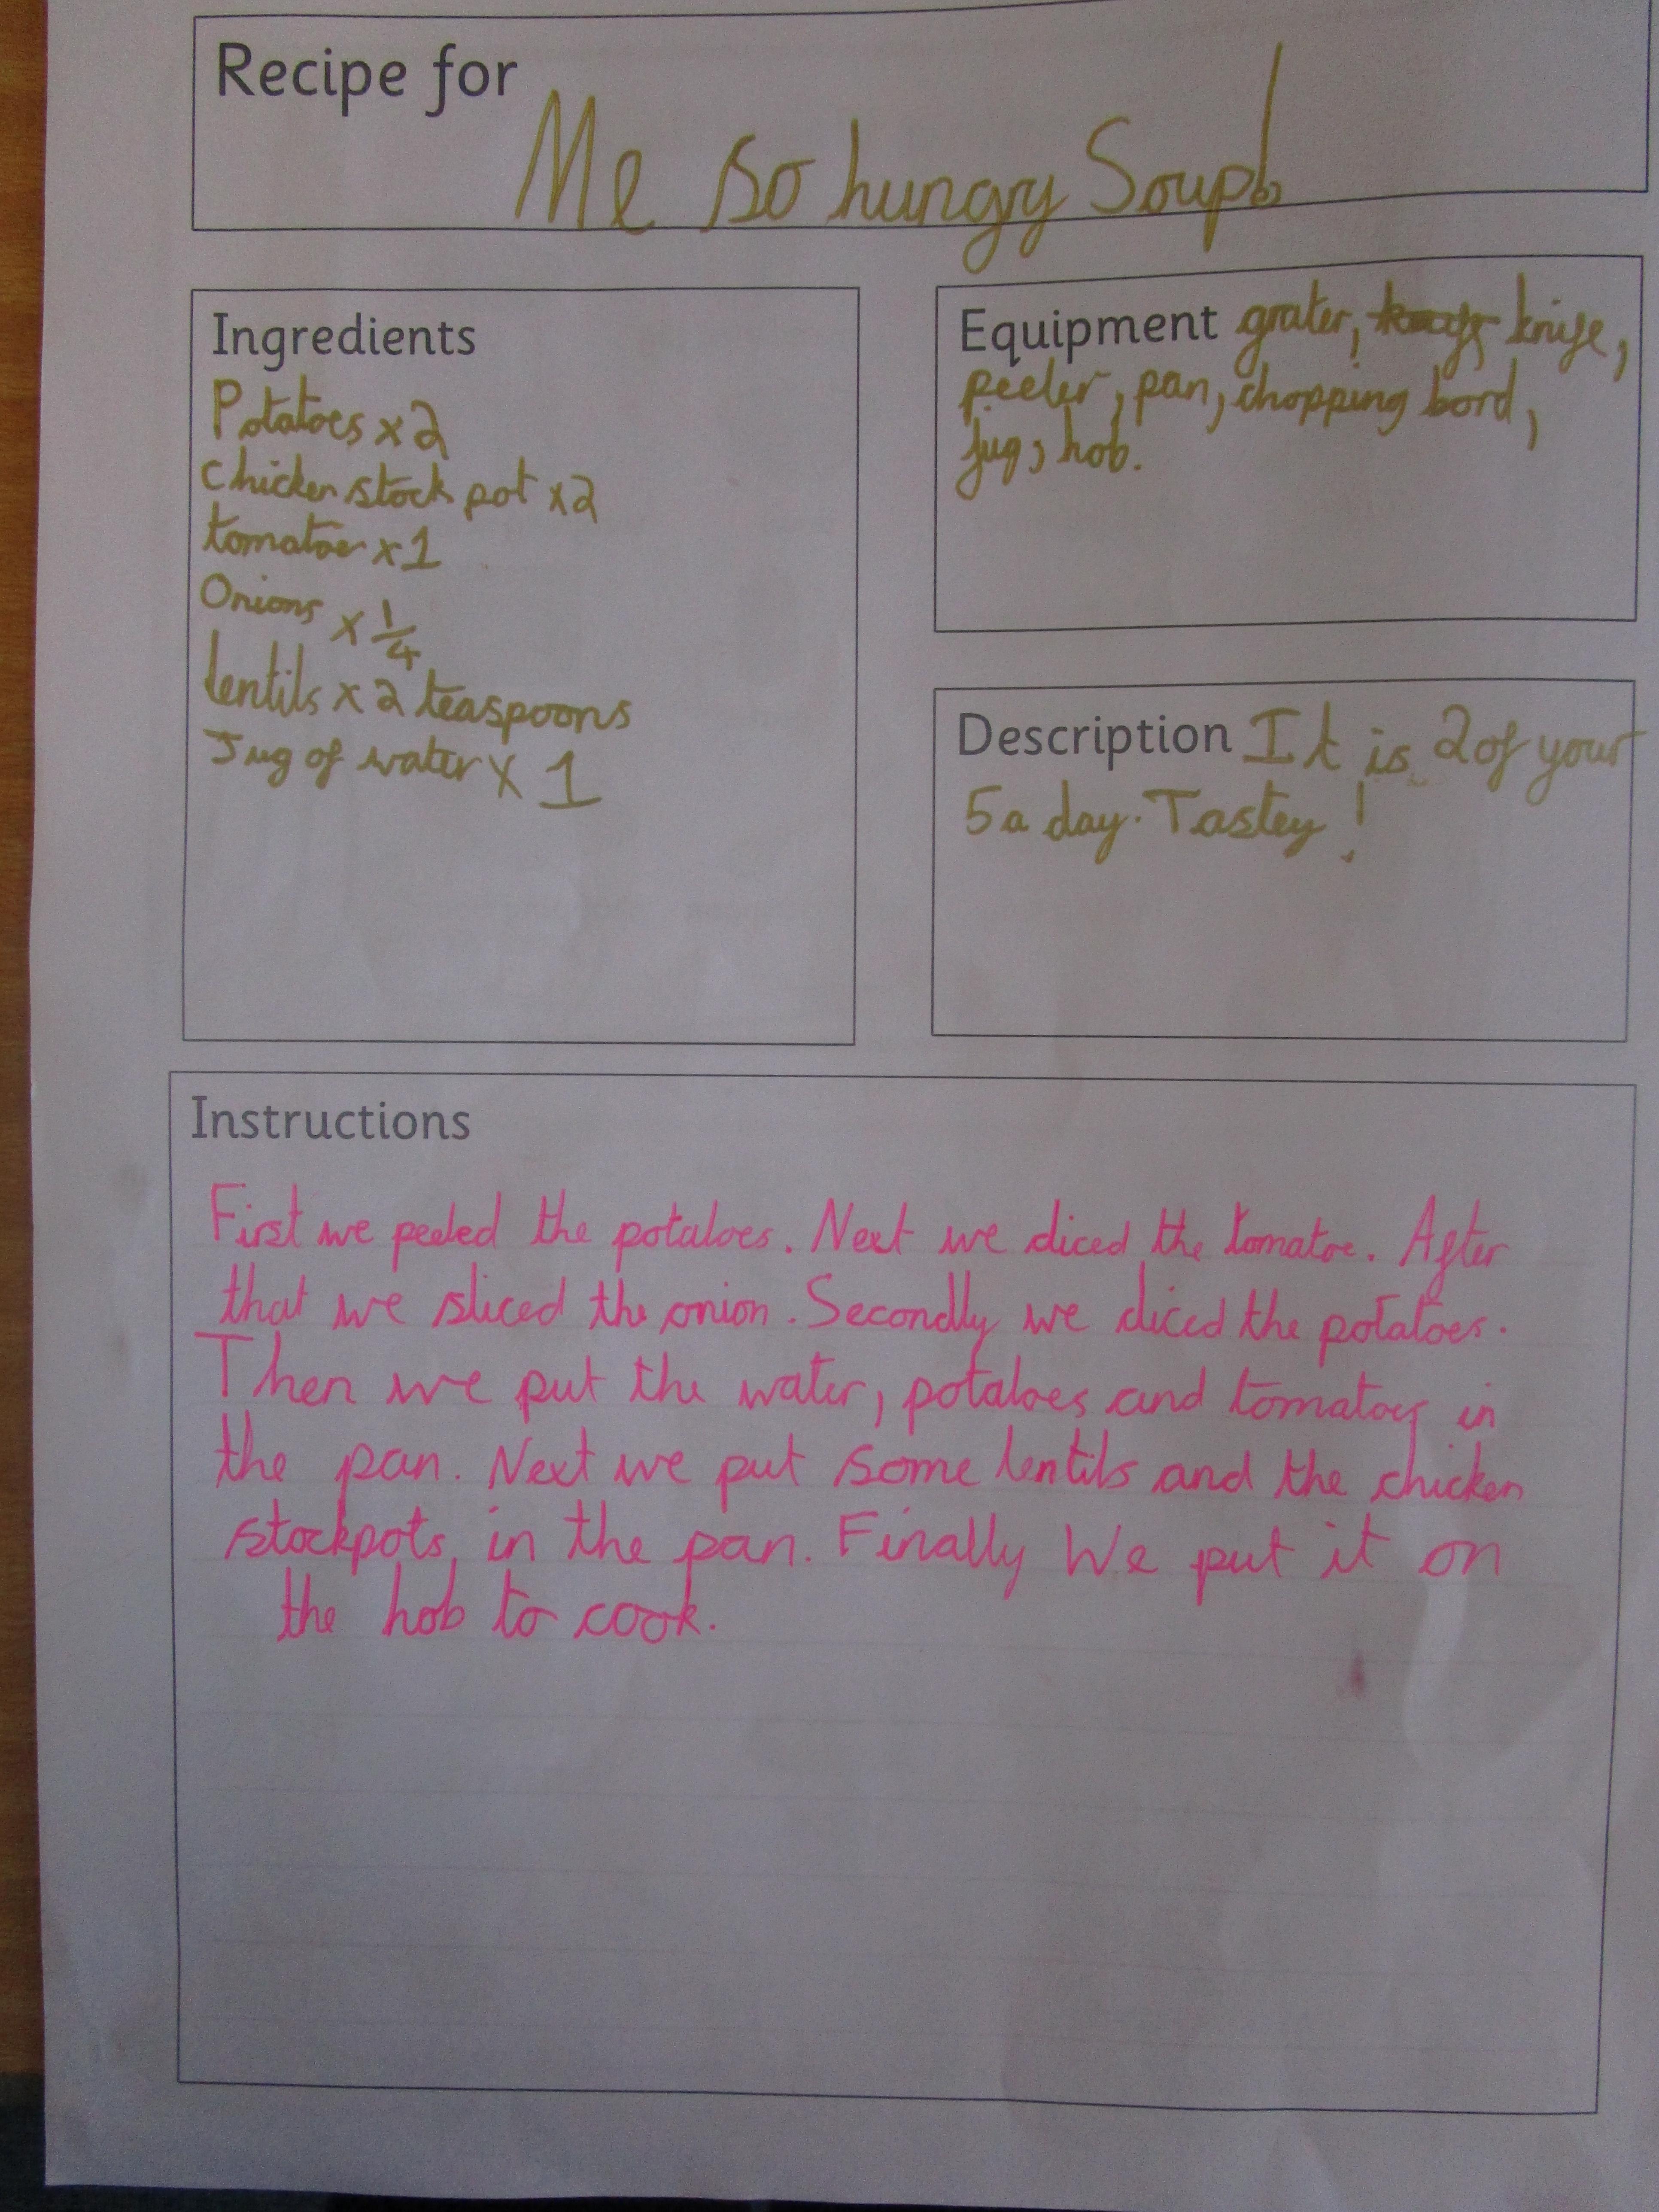 Recipe for
Me so hungry Soup!
Ingredients
Potatoes x2
chicken stock pot x2
tomatoe x1
Onions x 1/4
lentils x 2 teaspoons
Jug of water x 1
Equipment grater, knife,
peeler, pan, chopping bord,
jug, hob.
Description It is 2 of your
5 a day. Tastey!
Instructions
First we peeled the potatoes. Next we diced the tomatoe. After
that we sliced the onion. Secondly we diced the potatoes.
Then we put the water, potatoes and tomatoes in
the pan. Next we put some lentils and the chicken
stockpots in the pan. Finally We put it on
the hob to cook.